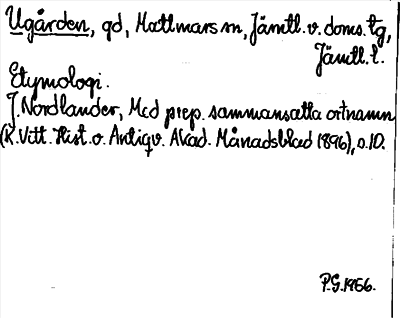 Ugården, gd, Mattmars sn, Jämtl. v. doms. tg,
Jämtl. l.
Etymologi.
J. Nordlander, Med prep. sammansatta ortnamn
(K. Vitt. Hist. o. Antiqv. Akad. Månadsblad 1896), s. 10.
P.G. 1956.